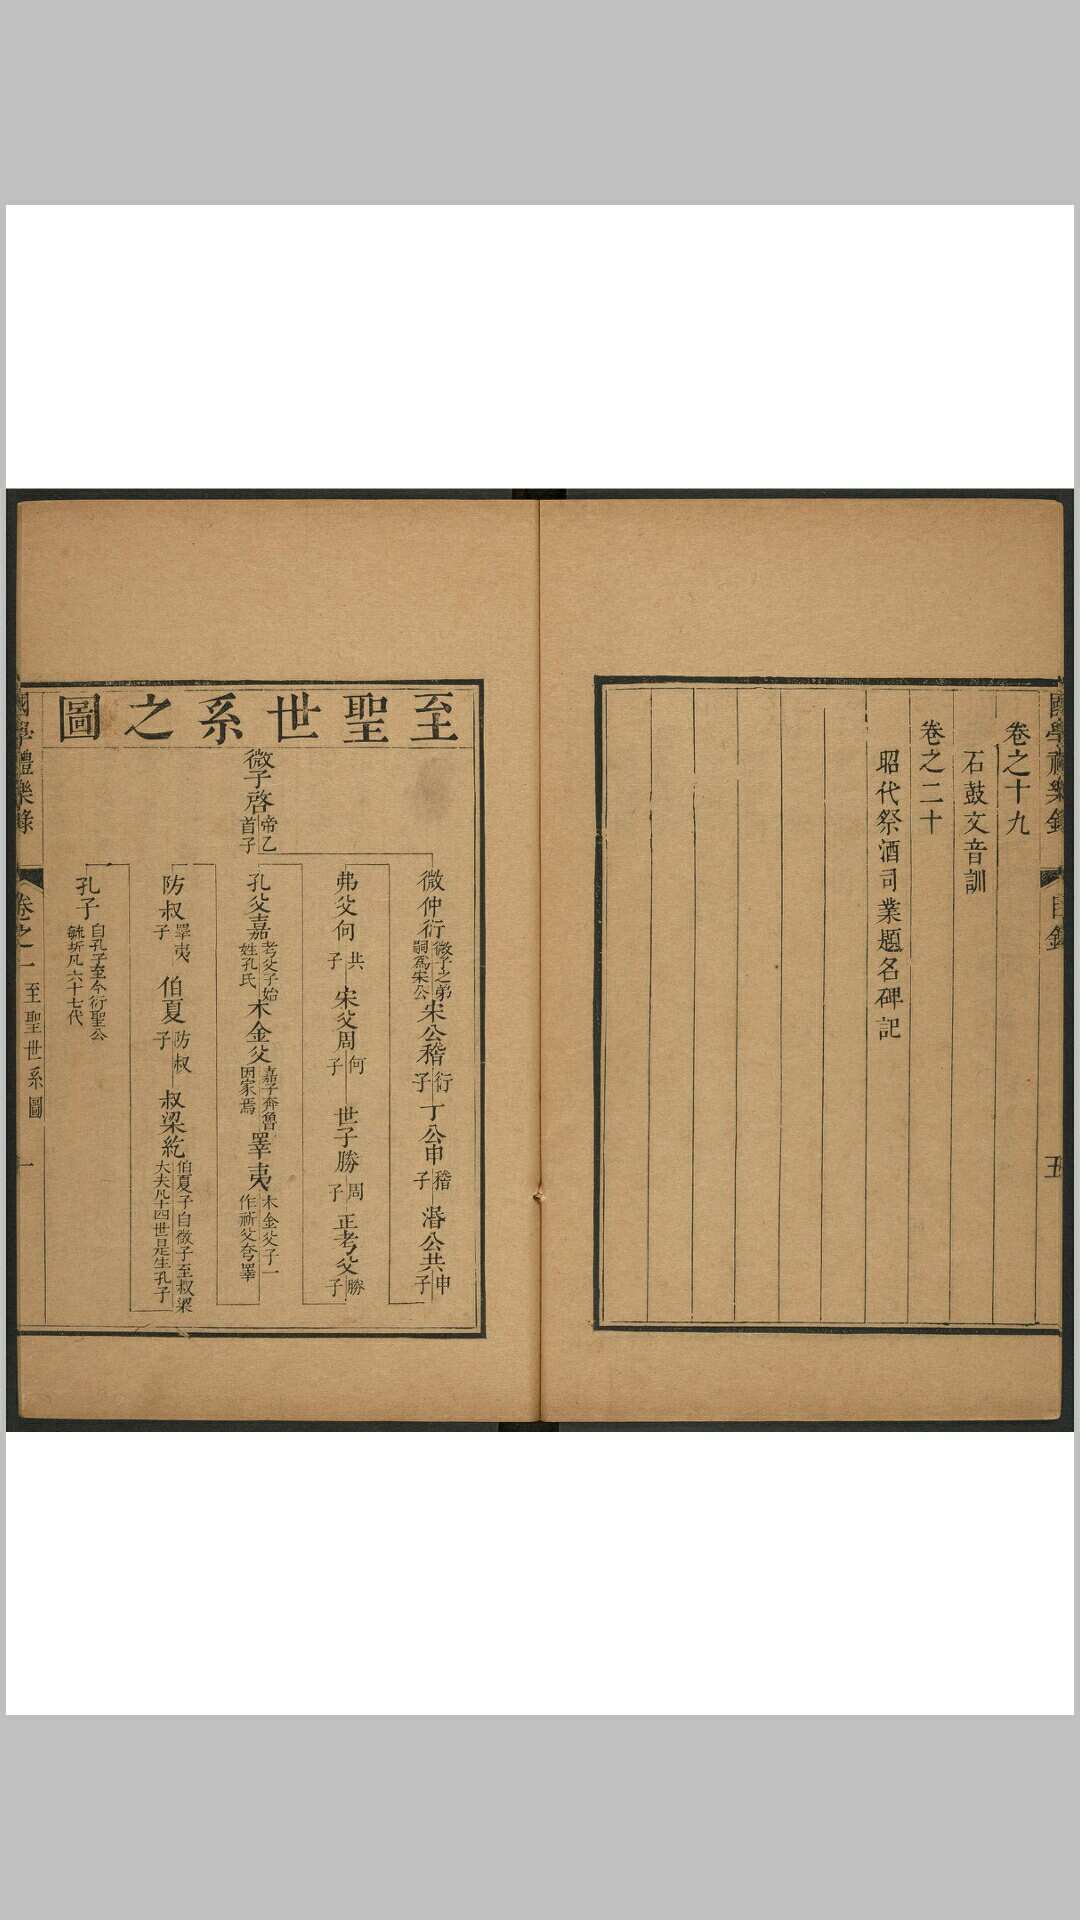 國學禮樂錄
目錄
五
卷之十九
石鼓文音訓
卷之二十
昭代祭酒司業題名碑記
至聖世系之圖
微子啓 帝乙首子
微仲衍 微子之弟嗣爲宋公 宋公稽 衍子 丁公申 稽子 湣公共 申子
弗父何 共子 宋父周 何子 世子勝 周子 正考父 勝子
孔父嘉 考父子始姓孔氏 木金父 嘉子奔魯因家焉 睪夷 木金父子一作祈父夸睪
防叔 睪夷子 伯夏 防叔子 叔梁紇 伯夏子自微子至叔梁大夫凡十四世是生孔子
孔子 自孔子至今衍聖公毓圻凡六十七代
國學禮樂錄
卷之一
至聖世系圖
一